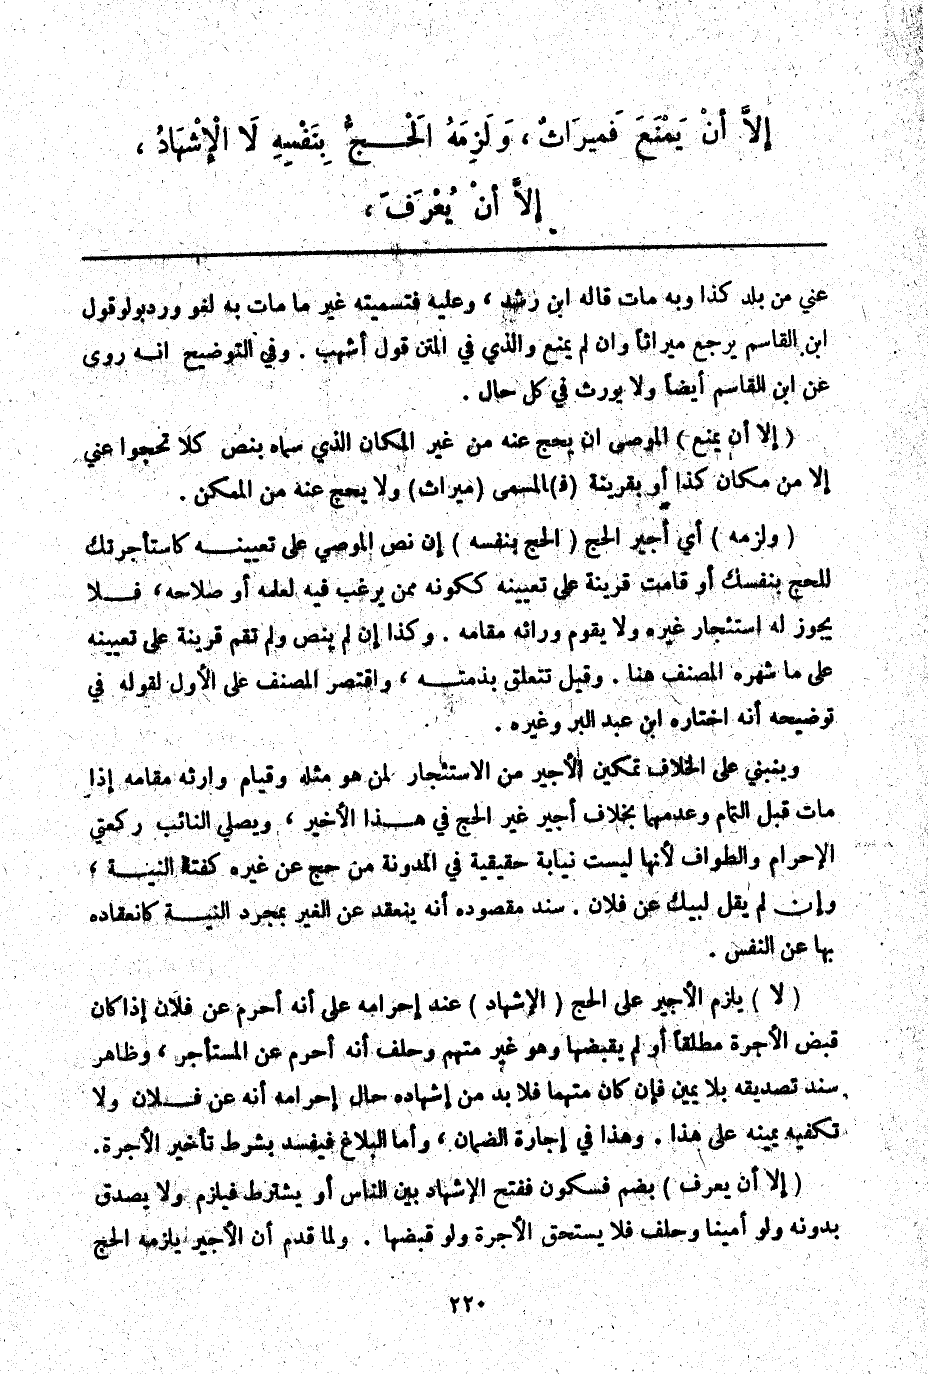 إلاَّ أَنْ يَمْنَعَ فَمِيرَاثٌ ، وَلَزِمَهُ الْحَـــجُّ بِنَفْسِهِ لَا الْإِشْهَادُ ،
إِلاَّ أَنْ يُعْرَفَ ،
عني من بلد كذا وبه مات قاله ابن رشد ، وعليه فتسميته غير ما مات به لغو وردبولوقول
ابن القاسم يرجع ميراثاً وان لم يمنع والذي في المتن قول أشهب . وفي التوضيح انـه روى
عن ابن القاسم أيضاً ولا يورث في كل حال .
( إلا أن يمنع ) الموصى ان يحج عنه من غير المكان الذي سماه بنص كلا تحجوا عني
إلا من مكان كذا أو بقرينة (ف)المسمى (ميراث) ولا يحج عنه من الممكن .
( ولزمه ) أي أجير الحج ( الحج بنفسه ) إن نص الموصي على تعيينـــه كاستأجرتك
للحج بنفسك أو قامت قرينة على تعيينه ككونه ممن يرغب فيه لعلمه أو صلاحه، فـــلا
يجوز له استئجار غيره ولا يقوم وراثه مقامه . وكذا إن لم ينص ولم تقم قرينة على تعيينه
على ما شهره المصنف هنا . وقيل تتعلق بذمتـــه ، واقتصر المصنف على الأول لقوله في
توضيحه أنه اختاره ابن عبد البر وغيره .
وينبني على الخلاف تمكين الأجير من الاستئجار لمن هو مثله وقيام وارثه مقامه إذا
مات قبل التمام وعدمهما بخلاف أجير غير الحج في هـــذا الأخير ، ويصلي النائب ركعتي
الإحرام والطواف لأنها ليست نيابة حقيقية في المدونة من حج عن غيره كفتة النيـــة ،
وإن لم يقل لبيك عن فلان . سند مقصوده أنه ينعقد عن الغير بمجرد النيـــة كانعقاده
بها عن النفس .
( لا ) يلزم الأجير على الحج ( الإشهاد ) عند إحرامه على أنه أحرم عن فلان إذا كان
قبض الأجرة مطلقاً أو لم يقبضها وهو غير متهم وحلف أنه أحرم عن المستأجر ، وظاهر
سند تصديقه بلا يمين فإن كان متهما فلا بد من إشهاده حال إحرامه أنه عن فـــلان ولا
تكفيه يمينه على هذا . وهذا في إجارة الضمان ، وأما البلاغ فيفسد بشرط تأخير الأجرة.
( إلا أن يعرف ) بضم فسكون ففتح الإشهاد بين الناس أو يشترط فيلزم ولا يصدق
بدونه ولو أمينا وحلف فلا يستحق الأجرة ولو قبضها . ولما قدم أن الأجير يلزمه الحج
٢٢٠